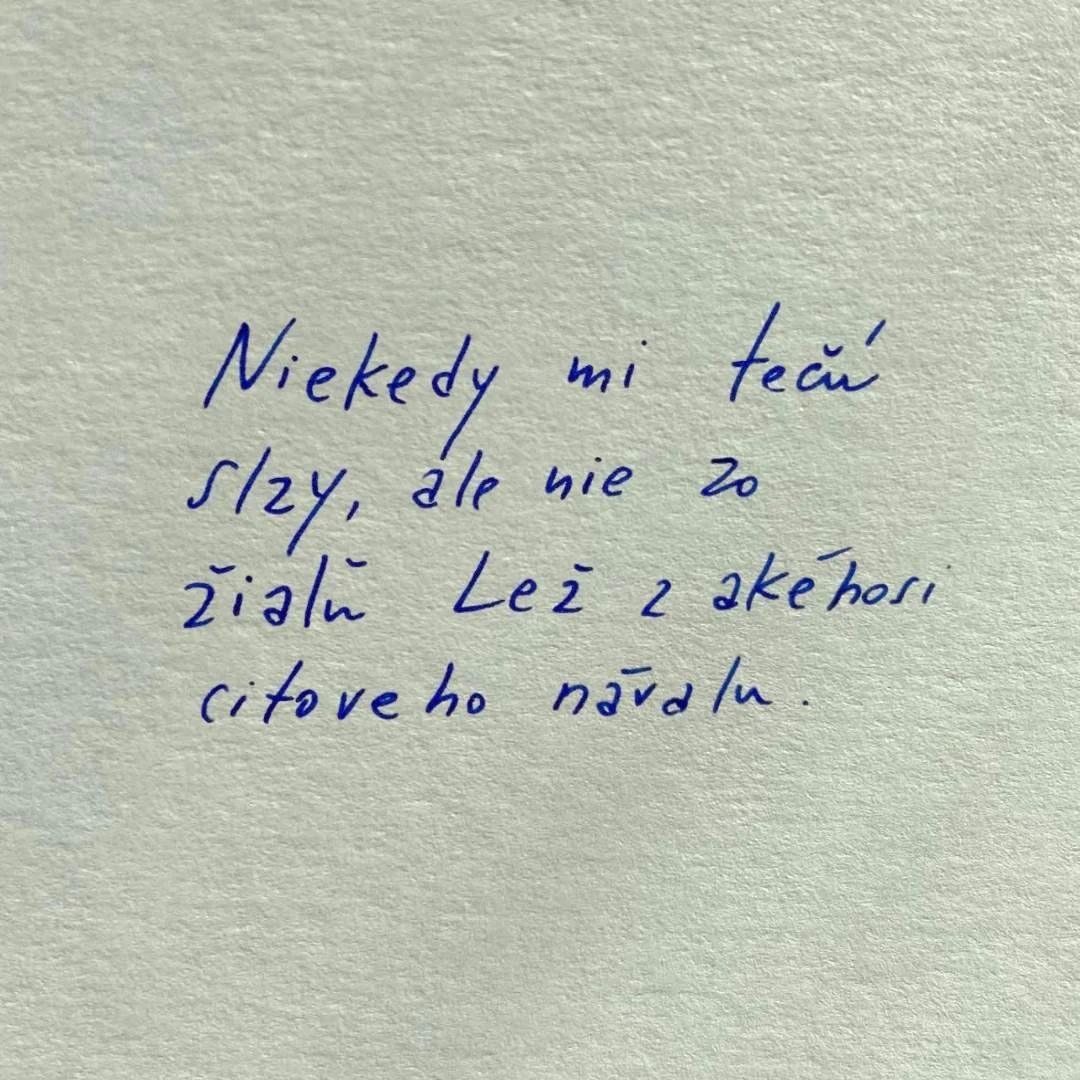 Niekedy mi tečú
slzy, ale nie zo
žialu Lež z akéhosi
citoveho návalu.